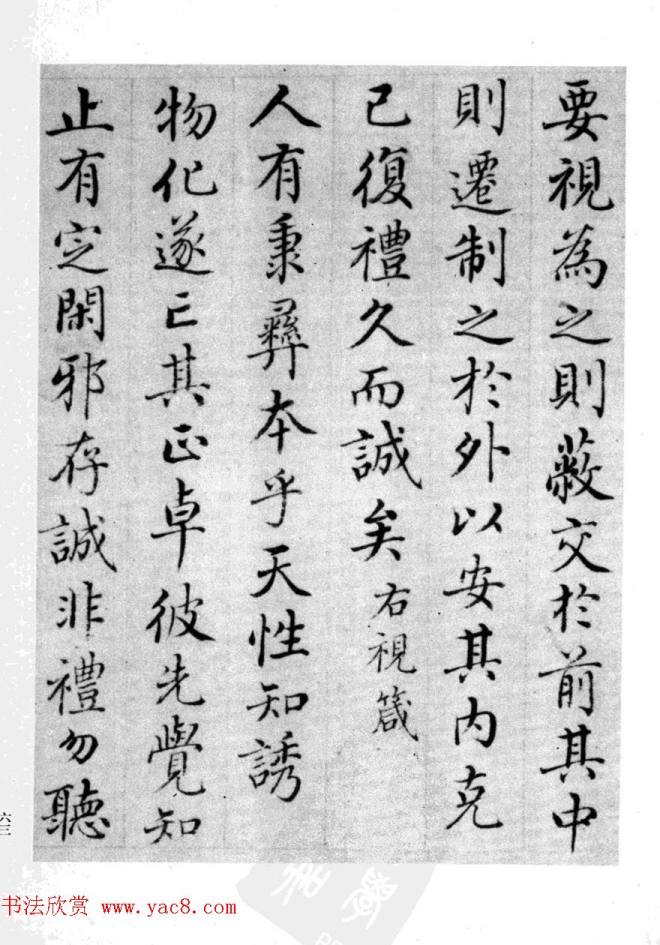 要視為之則蔽交於前其中
則遷制之於外以安其内克
己復禮久而誠矣右視箴
人有秉彝本乎天性知誘
物化遂亡其正卓彼先覺知
止有定閑邪存誠非禮勿聽
书法欣赏 www.yac8.com